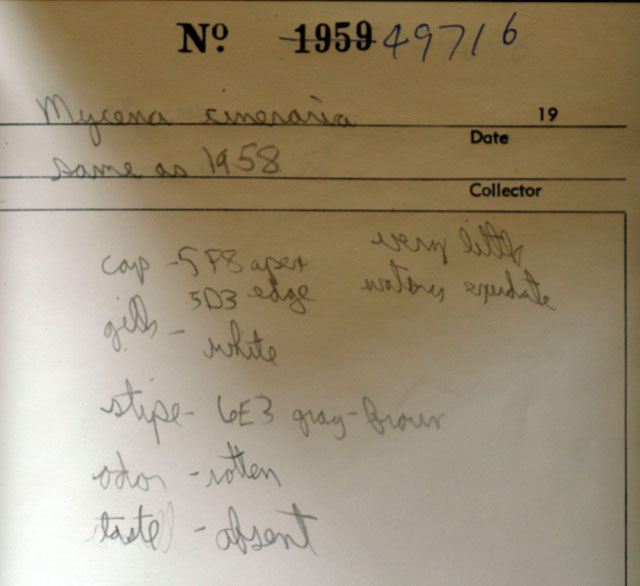 Nº 1959 49716
Mycena cineraria
19
Date
same as 1958
Collector
cap - 5F8 apex
5D3 edge
very little
watery exudate
gills - white
stipe - 6E3 gray-brown
odor - rotten
taste - absent